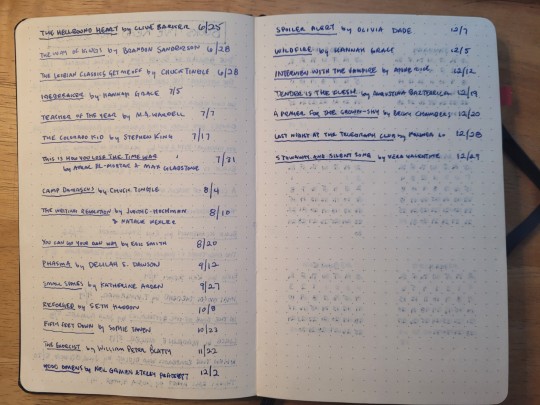 THE HELLBOUND HEART by CLIVE BARKER 6/25
THE WAY OF KINGS by BRANDON SANDERSON 6/28
THE LESBIAN CLASSICS GET ME OFF by CHUCK TINGLE 6/28
ICEBREAKER by HANNAH GRACE 7/5
TEACHER OF THE YEAR by M.A. WARDELL 7/7
THE COLORADO KID by STEPHEN KING 7/17
THIS IS HOW YOU LOSE THE TIME WAR
by AMAL EL-MOHTAR & MAX GLADSTONE 7/21
CAMP DAMASCUS by CHUCK TINGLE 8/4
THE by & NATALIE 8/10
YOU CAN GO YOUR OWN WAY by ERIC SMITH 8/20
PHASMA by DELILAH S. DAWSON 9/12
SMALL SPACES by KATHERINE ARDEN 9/27
REFORGED by SETH HADDON 10/8
FIFTY FEET DOWN by SOPHIE TANEN 10/23
THE EXORCIST by WILLIAM PETER BLATTY 11/22
GOOD OMENS by NEIL GAIMAN & TERRY PRATCHETT 12/2
SPOILER ALERT by OLIVIA DADE 12/7
WILDFIRE by HANNAH GRACE 12/5
INTERVIEW WITH THE VAMPIRE by ANNE RICE 12/12
TENDER IS THE FLESH by AGUSTINA BAZTERRICA 12/19
A PRAYER FOR THE CROWN-SHY by BECKY CHAMBERS 12/20
LAST NIGHT AT THE TELEGRAPH CLUB by MALINDA LO 12/28
STUNNING AND SILENT SONG by VERA VALENTINE 12/29